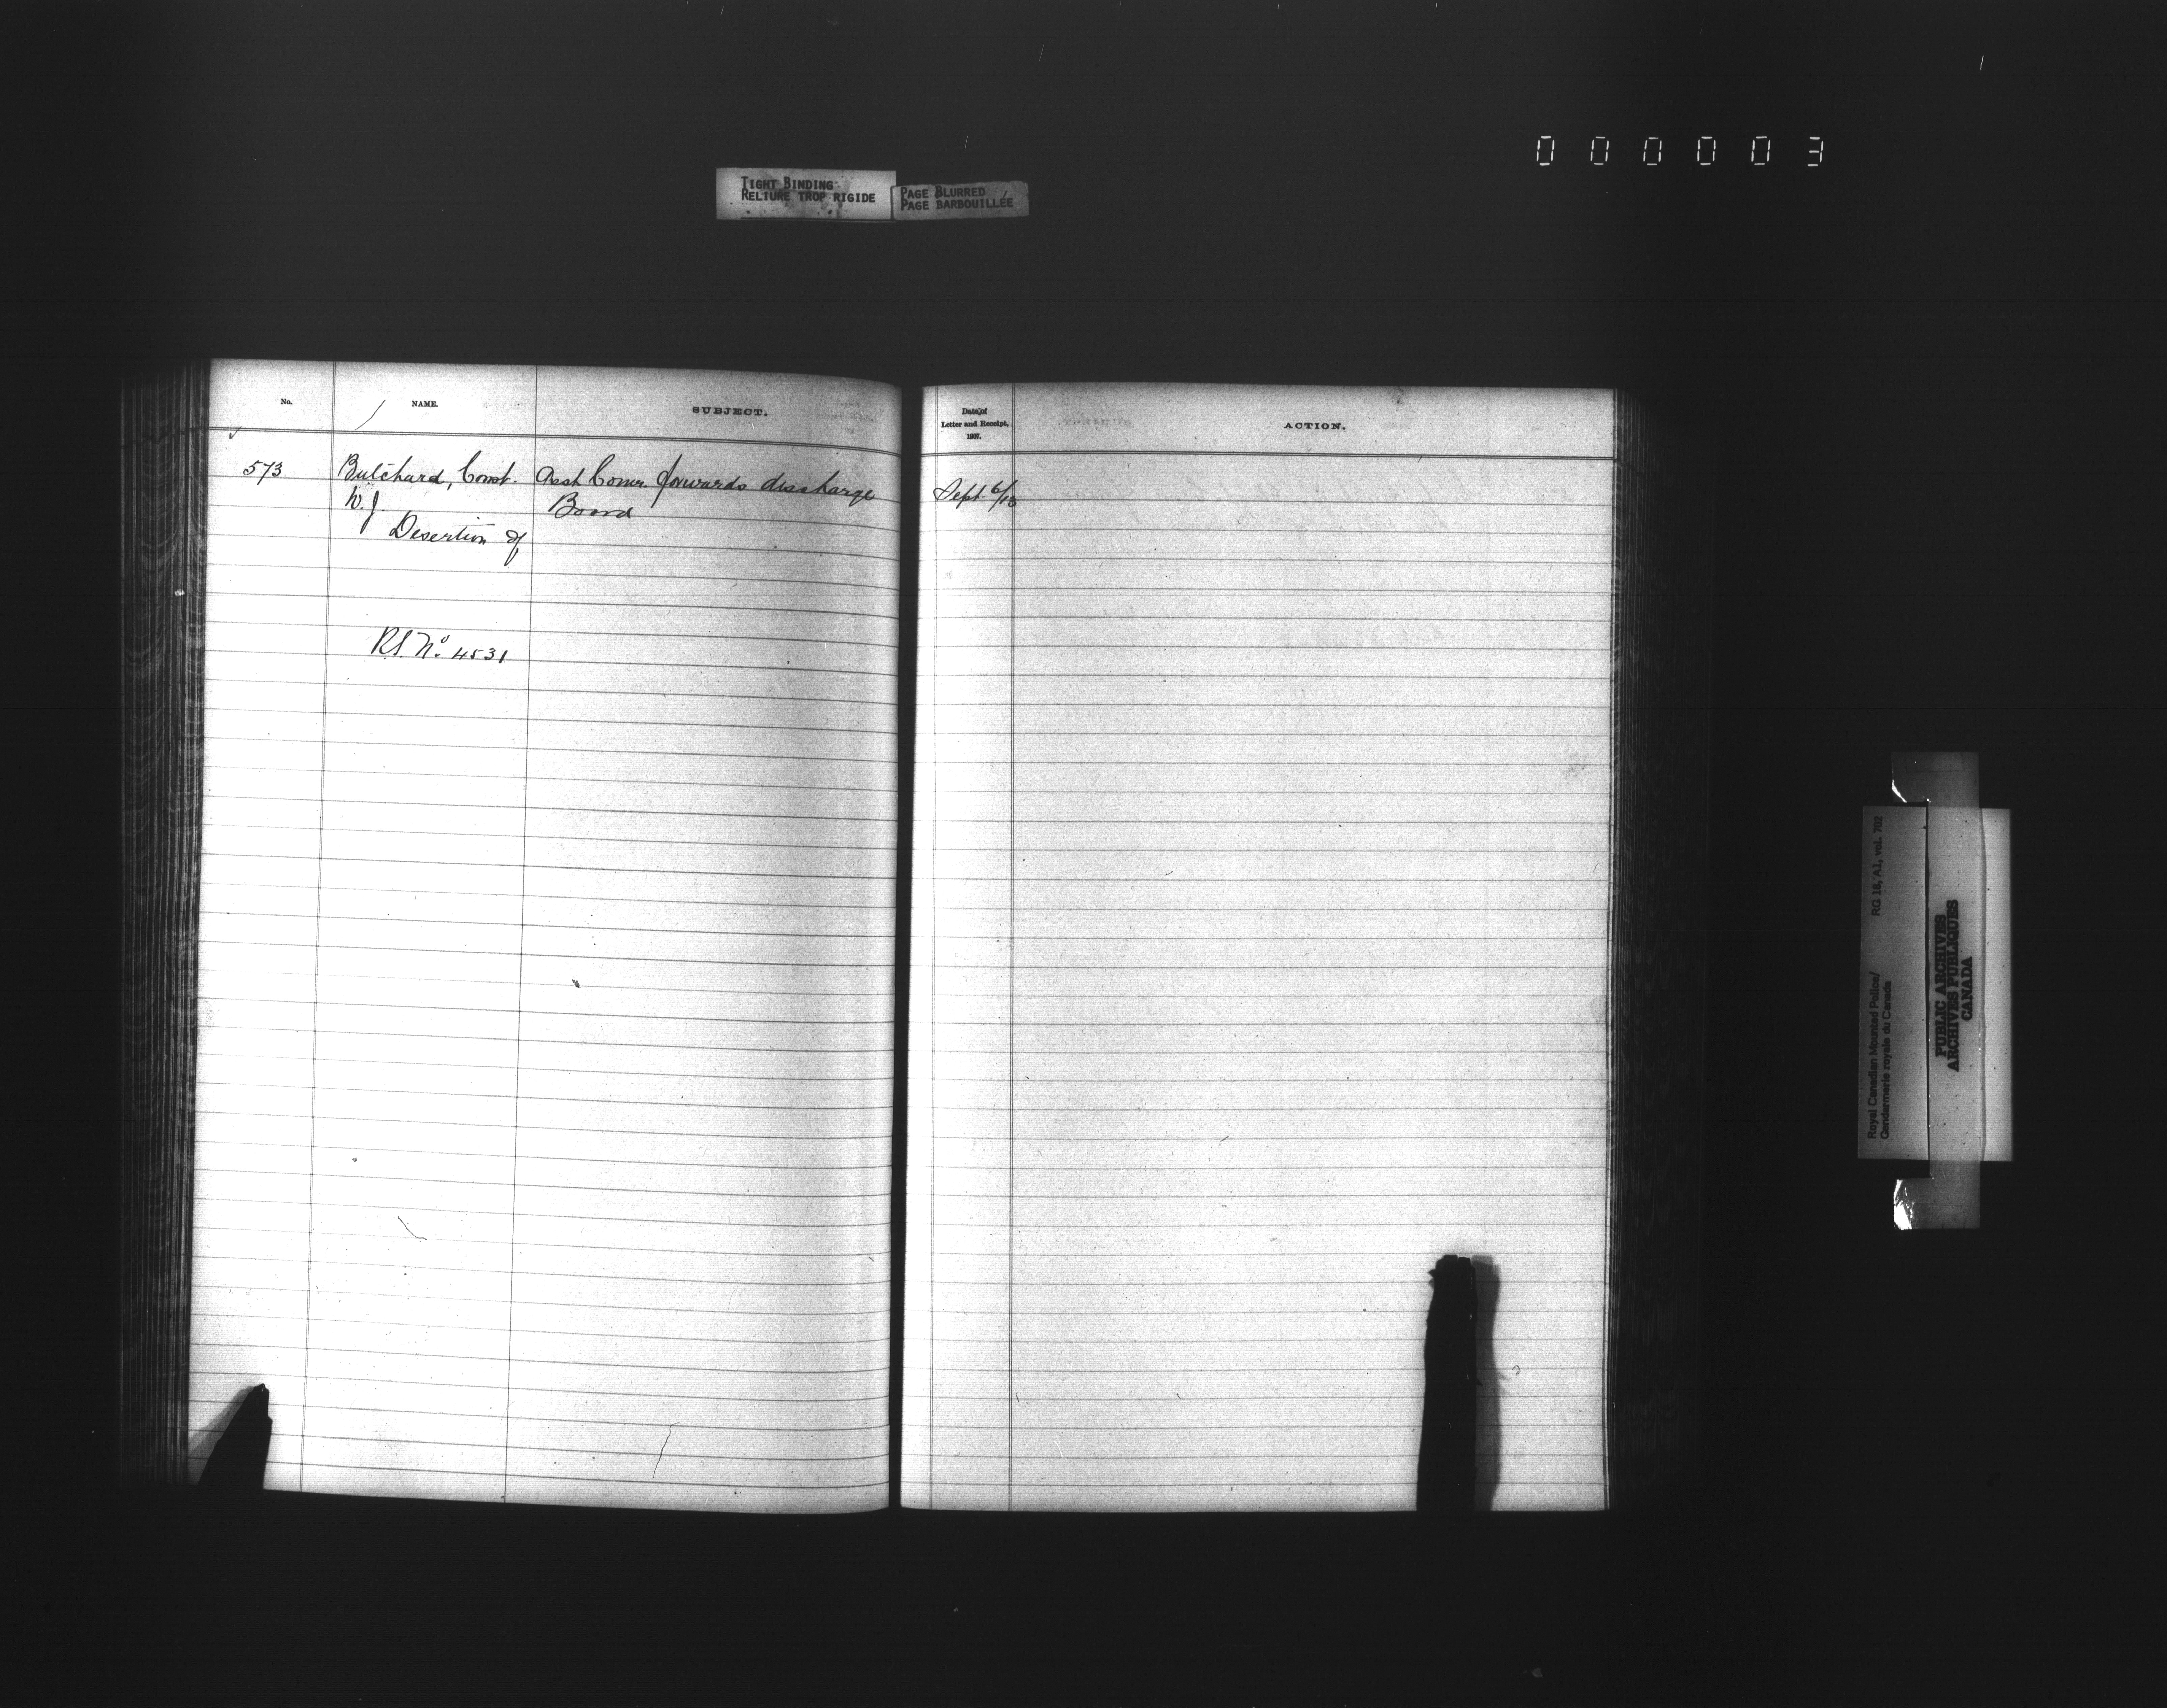 000003
TIGHT BINDING
RELIURE TROP RIGIDE
PAGE BLURRED
PAGE BARBOUILLÉE
No.
NAME.
SUBJECT.
573
Butchard, Const.
W. J.
Desertion of
Asst Comr. forwards discharge
Board
R.S. No 4531
Date of
Letter and Receipt,
1907.
ACTION.
Sept 6/13
Royal Canadian Mounted Police/
Gendarmerie royale du Canada
RG 18, A1, vol. 702
PUBLIC ARCHIVES
ARCHIVES PUBLIQUES
CANADA